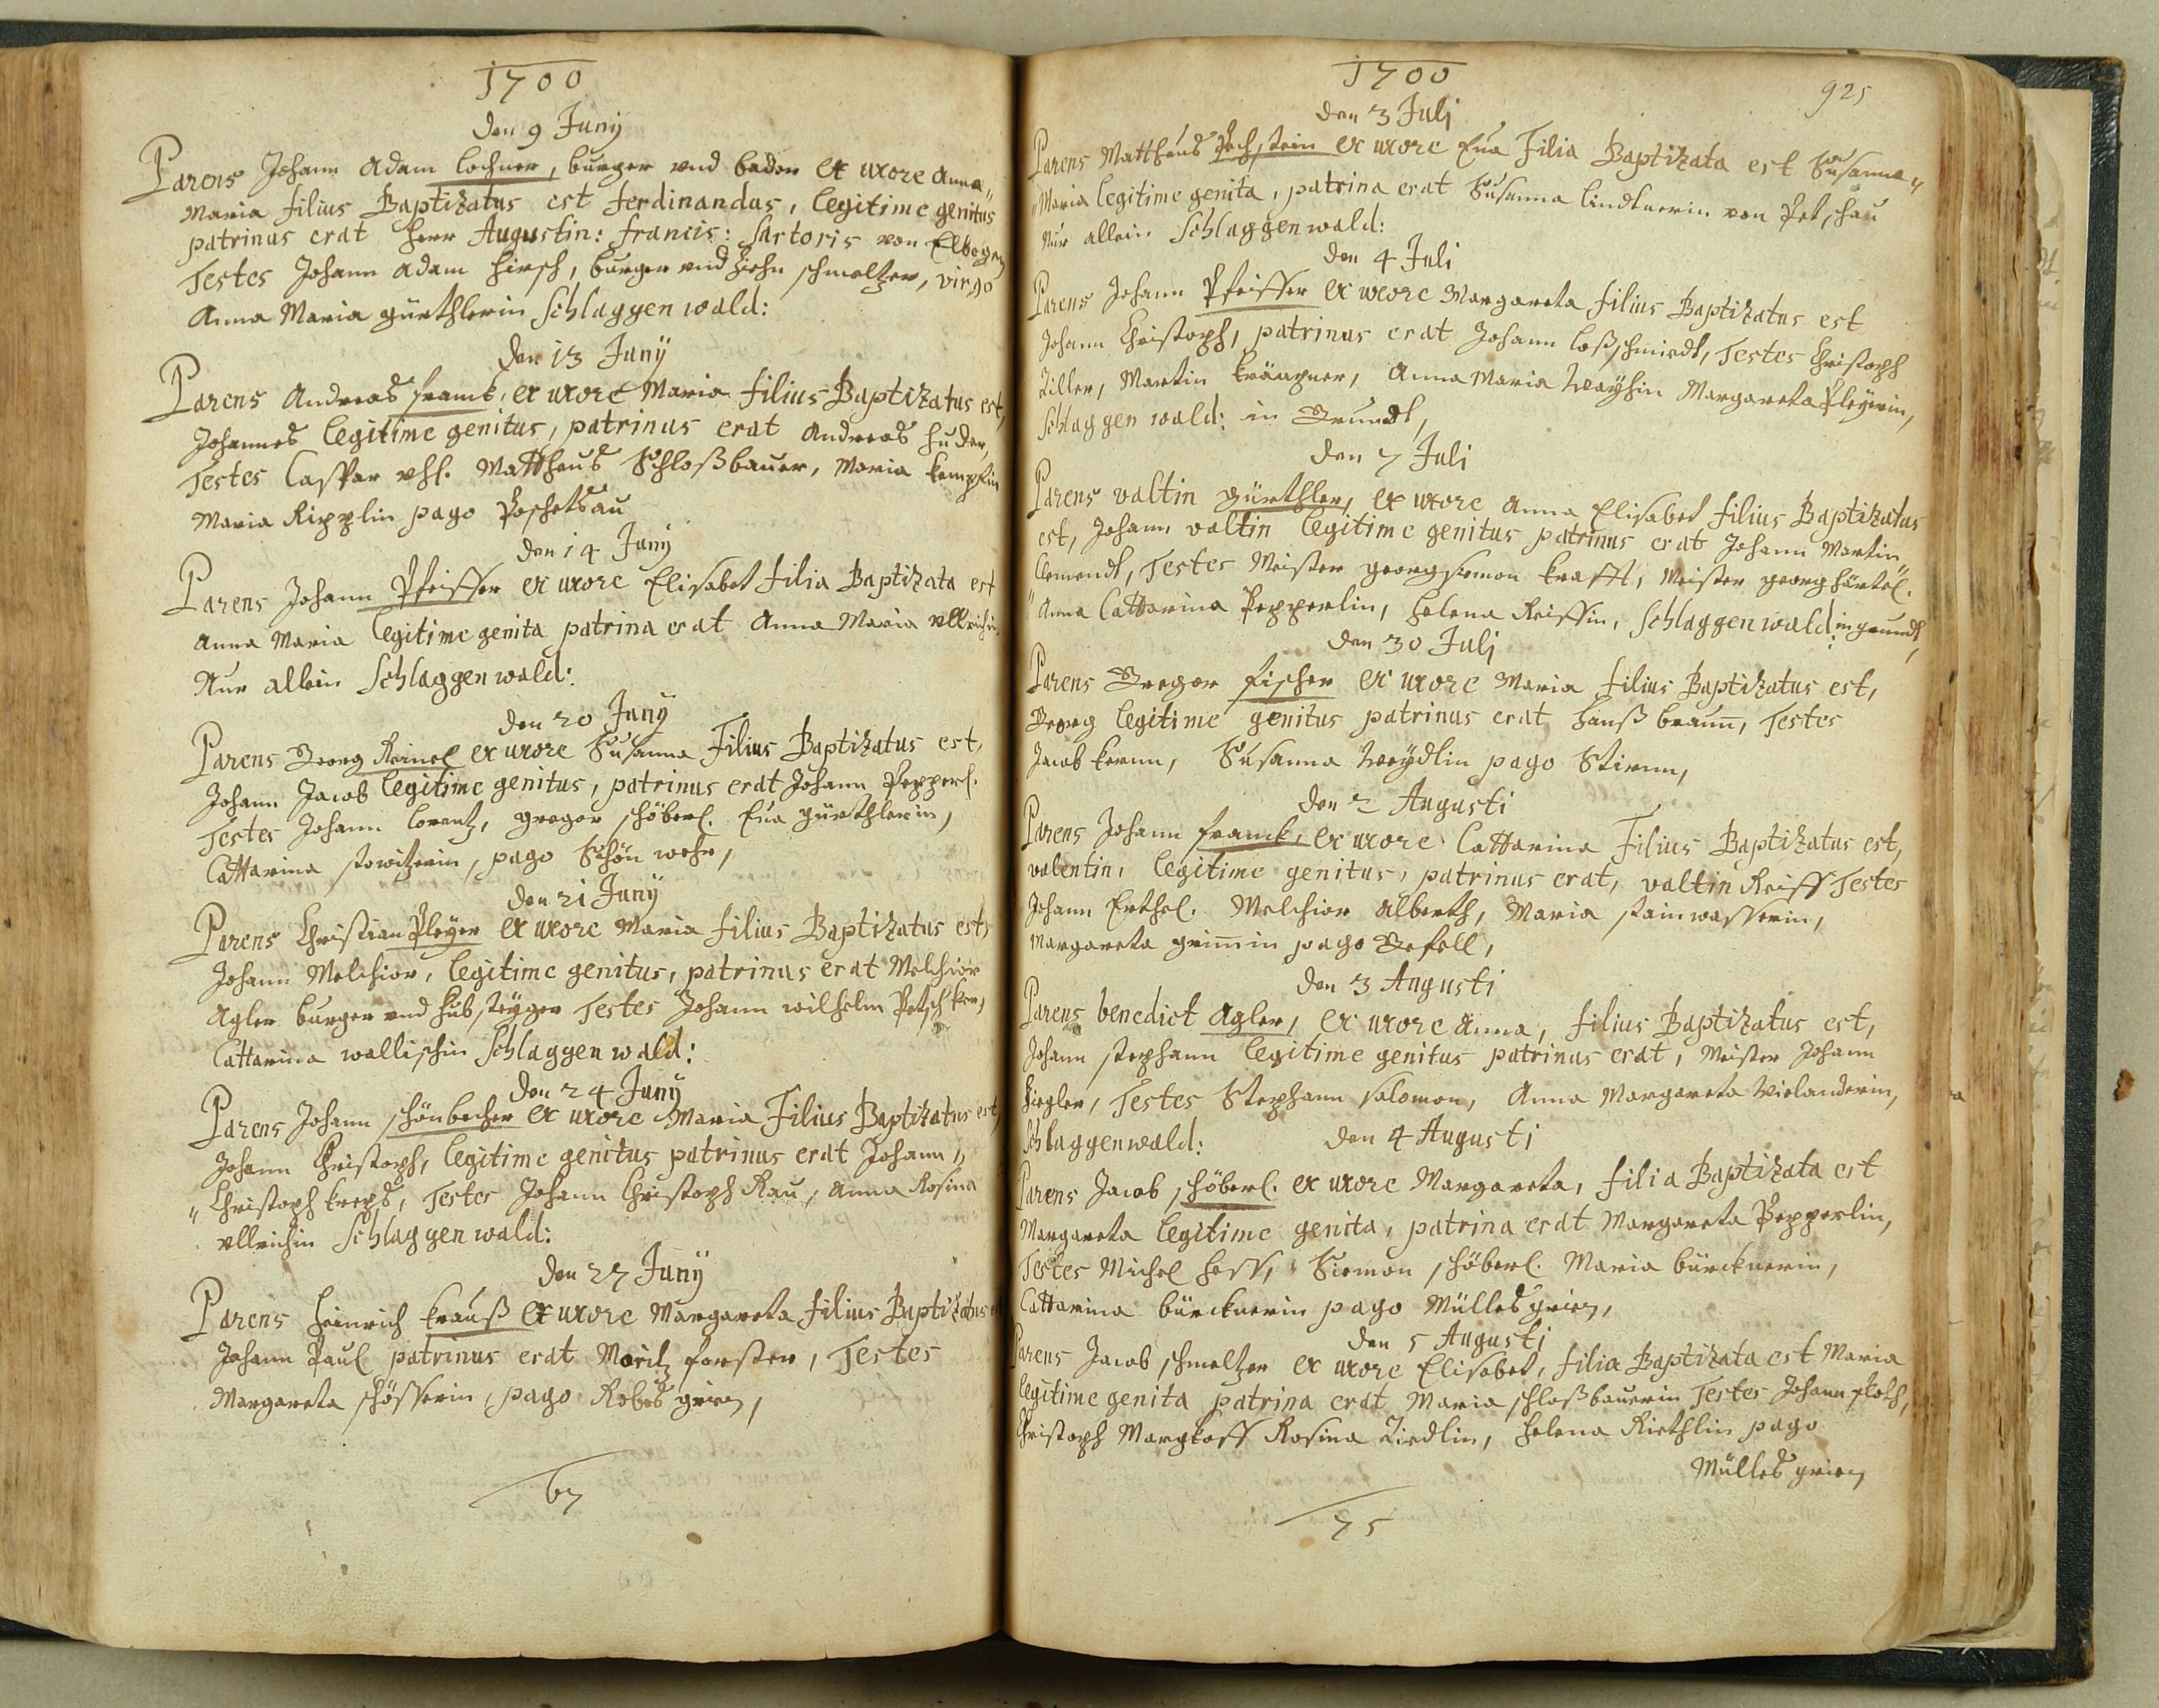 1700
den 9 Junij
Parens Johann Adam Lochner, burger vnd bader ex uxore Anna„
Maria filius Baptizatus est ferdinandus, legitime genitus
patrinus erat Herr Augustin: francis: Sartoris von Elbogen
Testes Johann Adam Hirsch, burger vnd Ziehn schmeltzer, virgo
Anna Maria gürthlerin Schlaggenwald:
den 13 Junij
Parens Andreas franck, ex uxore Maria filius Baptizatus est,
Johannes legitime genitus, patrinus erat Andreas Huder,
Testes Caspar vhl. Mattheus Schloßbauer, Maria kempfin
Maria Ripplin pago Poschetsau
den 14 Junij
Parens Johann Pfeiffer ex uxore Elisabet filia Baptizata est
Anna Maria legitime genita patrina erat Anna Maria vllrichin
Nur allein Schlaggenwald:
den 20 Junij
Parens Georg Reinel ex uxore Susanna Filius Baptizatus est,
Johann Jacob legitime genitus, patrinus erat Johann Pepperl.
Testes Johann Lorentz, gregor schöberl. Eua gürthlerin,
Cattarina stowitzerin, pago Schön wehr,
den 21 Junij
Parens Christian Pleyer ex uxore Maria filius Baptizatus est,
Johann Melchior, legitime genitus, patrinus erat Melchior
Agler burger vnd Hubsteyger Testes Johann wilhelm Petschker,
Cattarina wallischin Schlaggenwald:
den 24 Junij
Parens Johann schönbecher ex uxore Maria Filius Baptizatus est,
Johann Christoph, legitime genitus patrinus erat Johann„
„Christoph krebs, Testes Johann Christoph Rau, Anna Rosina
vllrichin Schlaggenwald:
den 27 Junij
Parens Heinrich krauß ex uxore Margareta filius Baptizatus est
Johann Paul patrinus erat Moritz forster, Testes
Margareta schösserin, pago Robesgrien,
67
1700
925
den 3 Juli
Parens Mattheus Pechstein ex uxore Eua Filia Baptizata est Susanna„
„Maria legitime genita, patrina erat Susanna Lindtnerin von Petschau
Nur allein Schlaggenwald:
den 4 Juli
Parens Johann Pfeiffer ex uxore Margareta filius Baptizatus est
Johann Christoph, patrinus erat Johann Loßschmiedt, Testes Christoph
Ziller, Martin Krämpner, Anna Maria Weyhin Margareta Pleyerin,
Schlaggenwald: in Grundt,
den 7 Juli
Parens valtin gürthler, ex uxore Anna Elisabet filius Baptizatus
est, Johann valtin legitime genitus patrinus erat Johann Martin„
Clementh, Testes Meister georg siemon krafft, Meister georg Härtel.
„Anna Cattarina Pepperlin, Helena Reissin, Schlaggenwald: in grundt,
den 30 Juli
Parens Gregor fischer ex uxore Maria filius Baptizatus est,
Georg legitime genitus patrinus erat Hanß braun, Testes
Jacob kernn, Susanna Weydlin pago Stirnn,
den 2 Augusti
Parens Johann franck, ex uxore Cattarina Filius Baptizatus est,
valentin, legitime genitus, patrinus erat, valtin Reiff Testes
Johann Erthel. Melchior Alberth, Maria stainwasserin,
Margareta grimmin pago Gefell,
den 3 Augusti
Parens benedict Agler, ex uxore Anna, filius Baptizatus est,
Johann stephann legitime genitus patrinus erat, Meister Johann
Ziegler, Testes Stephann salomon, Anna Margareta Wielanderin,
Schlaggenwald:
den 4 Augusti
Parens Jacob schöberl. ex uxore Margareta, filia Baptizata est
Margareta legitime genita, patrina erat Margareta Pepperlin,
Testes Michel Hess, Siemon schöberl. Maria bürcknerin,
Cattarina bürcknerin pago Müllesgrien,
den 5 Augusti
Parens Jacob schmeltzer ex uxore Elisabet, filia Baptizata est Maria
legitime genita patrina erat Maria schloßbauerin Testes Johann floth,
Christoph Margkoff Rosina Liedlin, Helena Riethlin pago
Müllesgrien
75